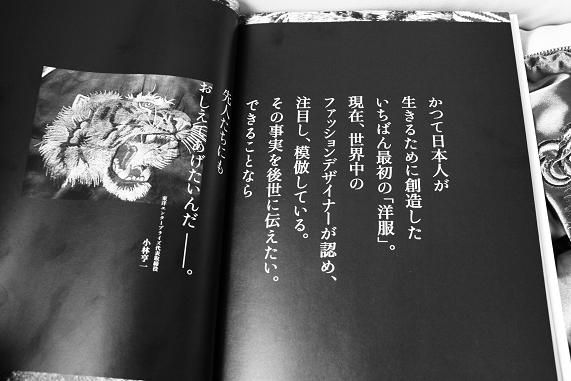 かつて日本人が
生きるために創造した
いちばん最初の「洋服」。
現在、世界中の
ファッションデザイナーが認め、
注目し、模倣している。
その事実を後世に伝えたい。
できることなら
先人たちにも
おしえてあげたいんだ——。
東洋エンタープライズ代表取締役
小林亨一